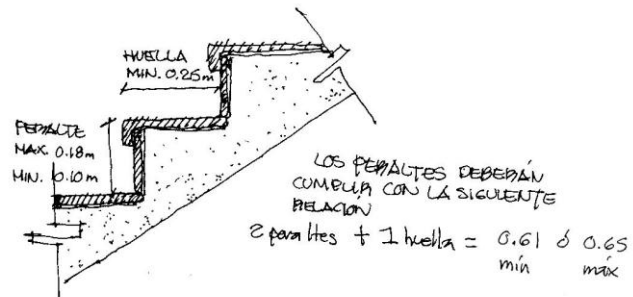 HUELLA
MIN. 0.25m
PERALTE
MAX. 0.18m
MIN. 0.10m
LOS PERALTES DEBERÁN
CUMPLIR CON LA SIGUIENTE
RELACIÓN
2 peraltes + 1 huella = 0.61 ó 0.65
mín máx